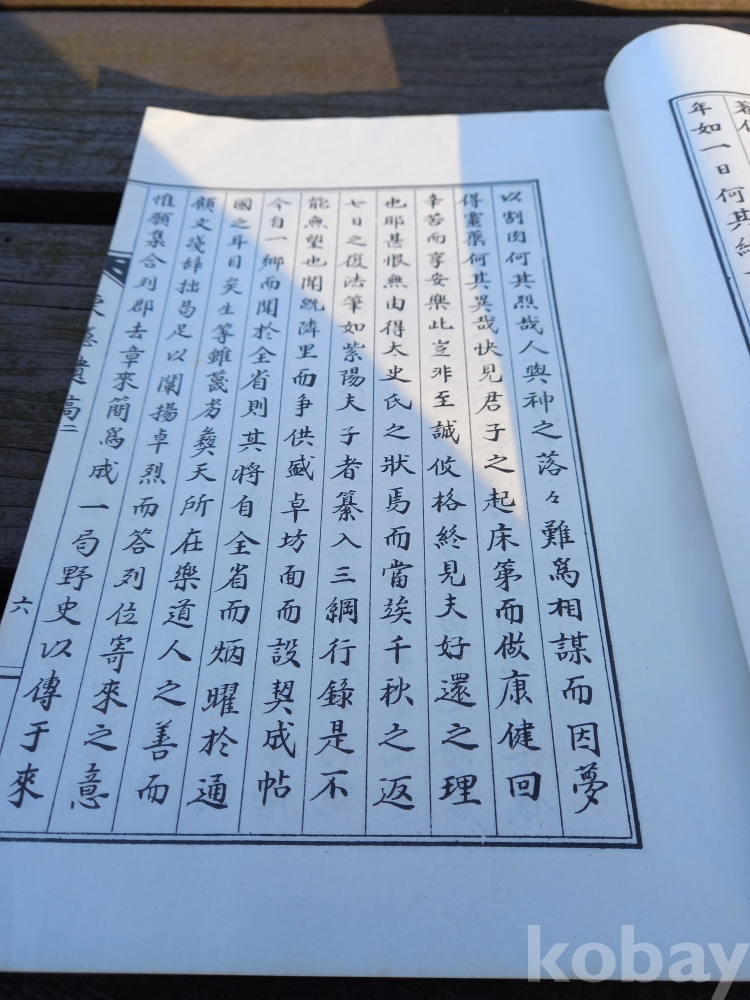 年如一日何其
以割肉何其烈哉人與神之落々難爲相謀而因夢
得靈藥何其異哉快見君子之起床第而做康健回
辛苦而享安樂此豈非至誠攸格終見夫好還之理
也耶甚恨無由得太史氏之狀焉而當竢千秋之返
七日之復法筆如紫陽夫子者纂入三綱行錄是不
能無望也聞跣隣里而爭供盛卓坊面而設契成帖
今自一鄕而聞於全省則其將自全省而炳曜於通
國之耳目矣生等雖蔑劣彜天所在樂道人之善而
顧文淺辞拙曷足以闡揚卓烈而答列位寄來之意
惟願集合列郡去章來簡爲成一局野史以傳于來
遺高二
六
kobay